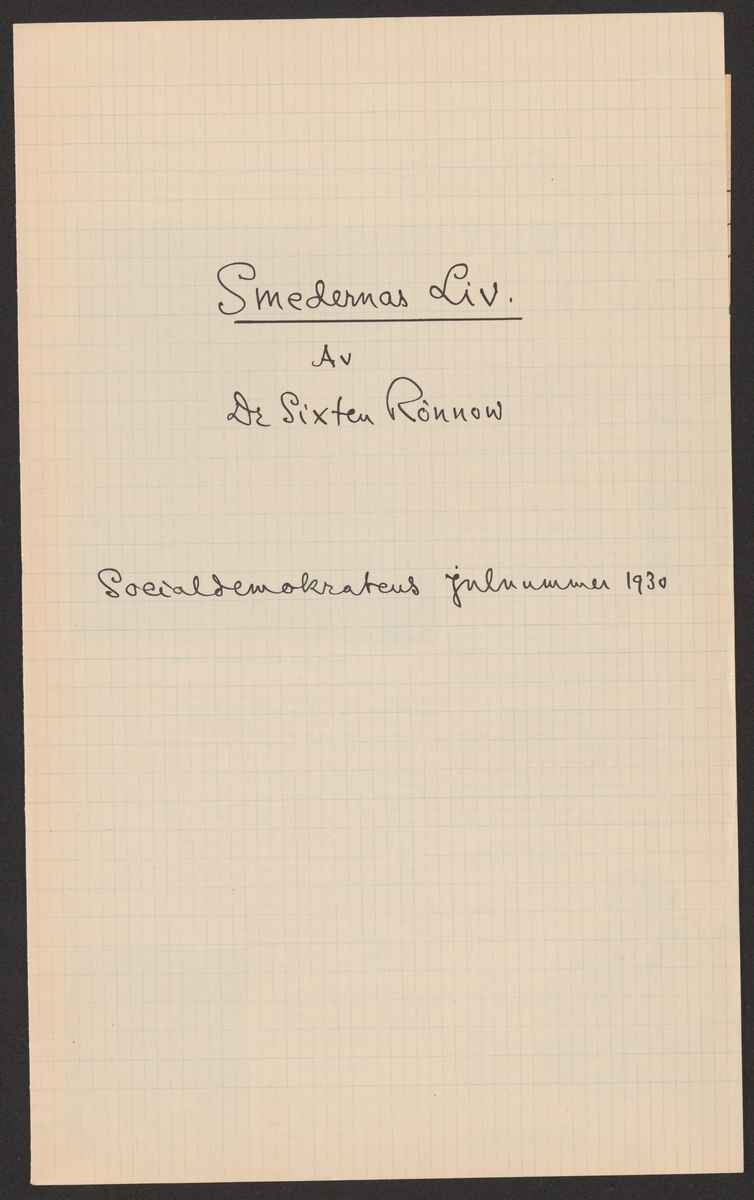 Smedernas Liv.
Av
Dr Sixten Rönnow
Socialdemokratens julnummer 1930